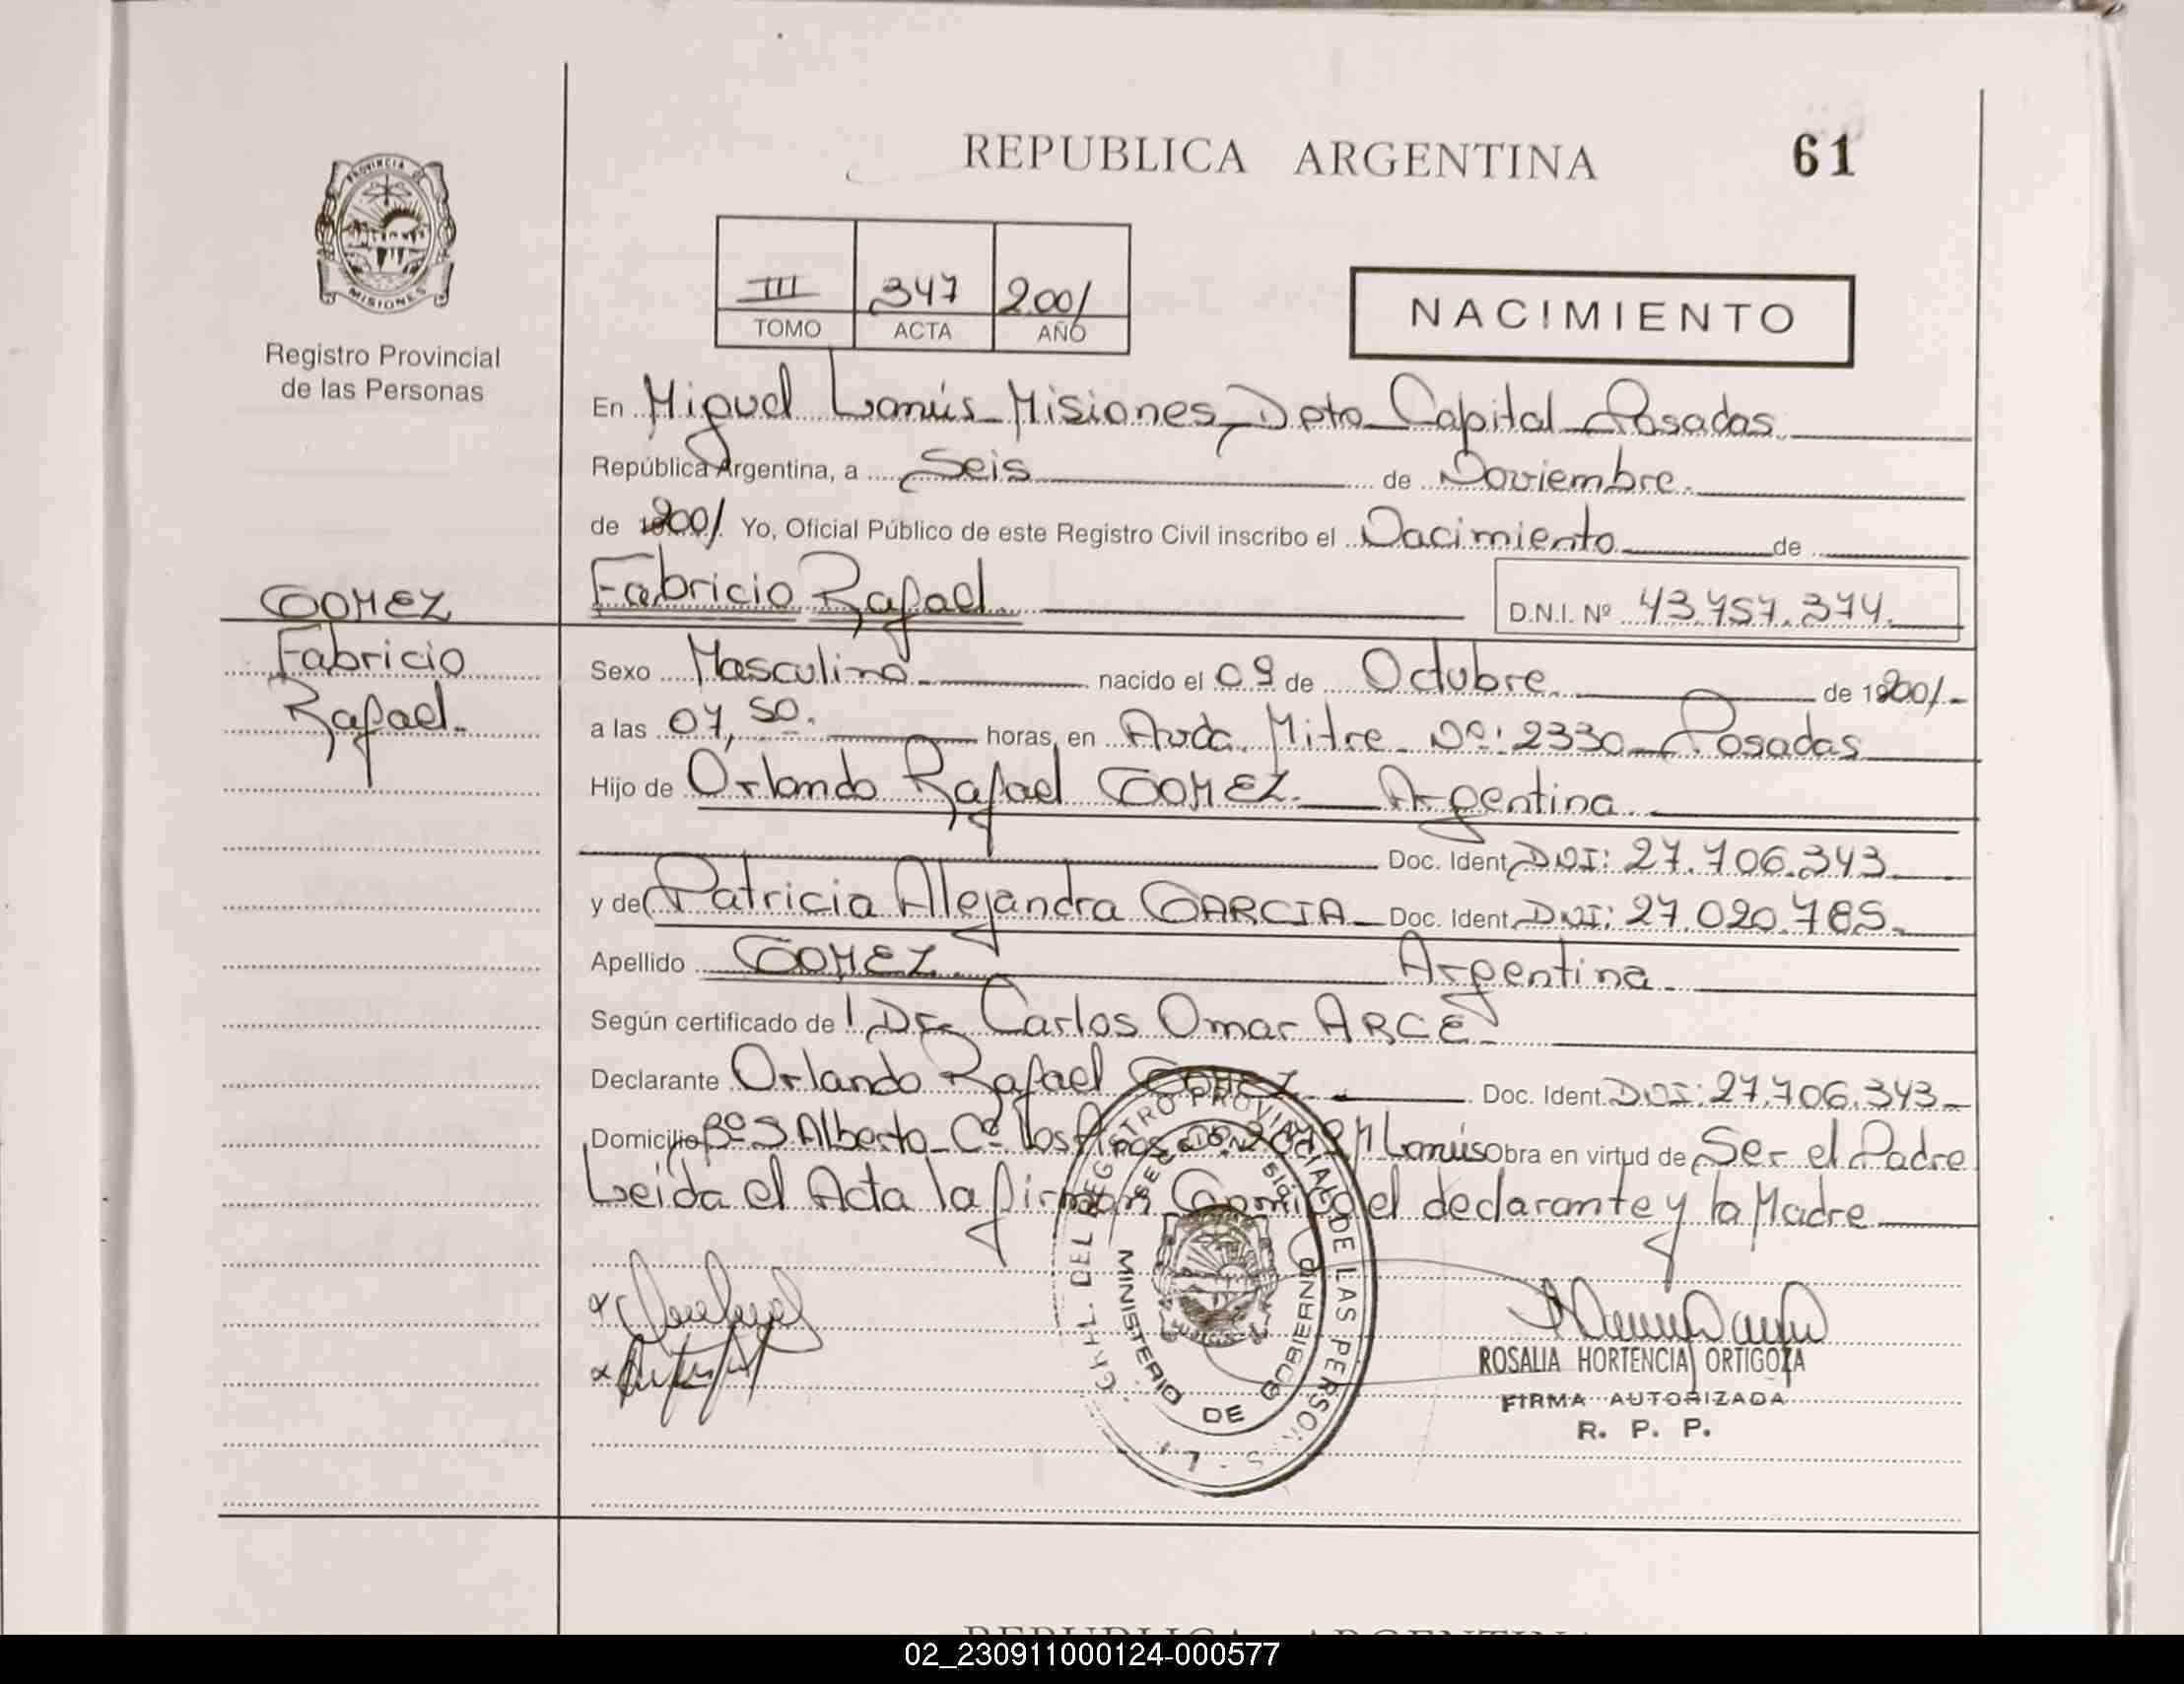 REPUBLICA ARGENTINA
61
PROVINCIA DE
MISIONES
Registro Provincial
de las Personas
III 347 2001
TOMO ACTA AÑO
NACIMIENTO
En Miguel Lanús Misiones, Dpto Capital Posadas
República Argentina, a Seis de Noviembre.
de 2001 Yo, Oficial Público de este Registro Civil inscribo el Nacimiento de
GOMEZ
Fabricio
Rafael.
Fabricio Rafael. D.N.I. Nº 43.757.374.
Sexo Masculino nacido el 09 de Octubre de 2001.-
a las 07,50. horas, en Avda. Mitre Nº: 2330 Posadas
Hijo de Orlando Rafael GOMEZ. Argentina.
Doc. Ident. DNI: 27.706.343
y de Patricia Alejandra GARCIA Doc. Ident. DNI: 27.020.785.
Apellido GOMEZ. Argentina.
Según certificado de Dr. Carlos Omar ARCE
Declarante Orlando Rafael GOMEZ Doc. Ident. DNI: 27.706.343
Domicilio Bº S. Alberto Lanús obra en virtud de Ser el Padre
Leida el Acta la firman Conmigo el declarante y la Madre
DEL REGISTRO PROVINCIAL DE LAS PERSONAS
MINISTERIO DE GOBIERNO
ROSALIA HORTENCIA ORTIGOZA
FIRMA AUTORIZADA
R. P. P.
REPUBLICA ARGENTINA
02_230911000124-000577